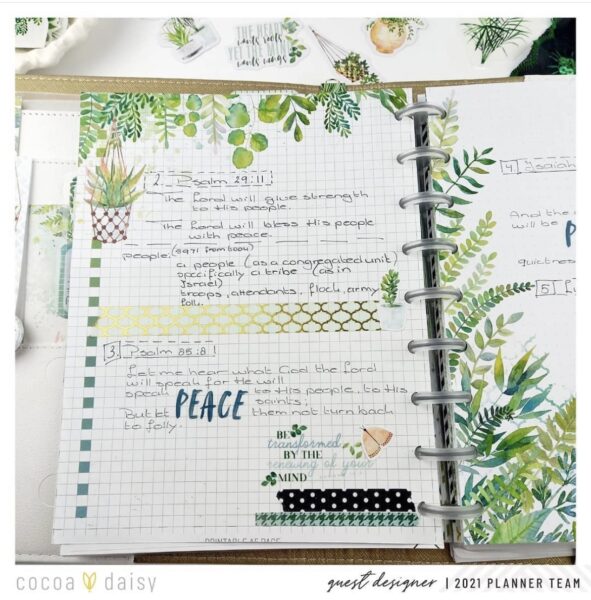 THE HEART
wants roots
YET THE MIND
wants wings
2. Psalm 29:11
The Lord will give strength
to His people.
The Lord will bless His people
with peace.
people: (5971 from
a people (as a congregated unit)
specifically a tribe (as in
Israel)
troops, attendants, flock, army
folk.
3. Psalm 85:8
Let me hear what God the Lord
will speak for He will
speak PEACE to His people, to His
saints;
But let them not turn back
to folly.
BE
transformed
BY THE
renewing of your
MIND
4. Isaiah
And the
will be
quietness
5
cocoa daisy
guest designer | 2021 PLANNER TEAM